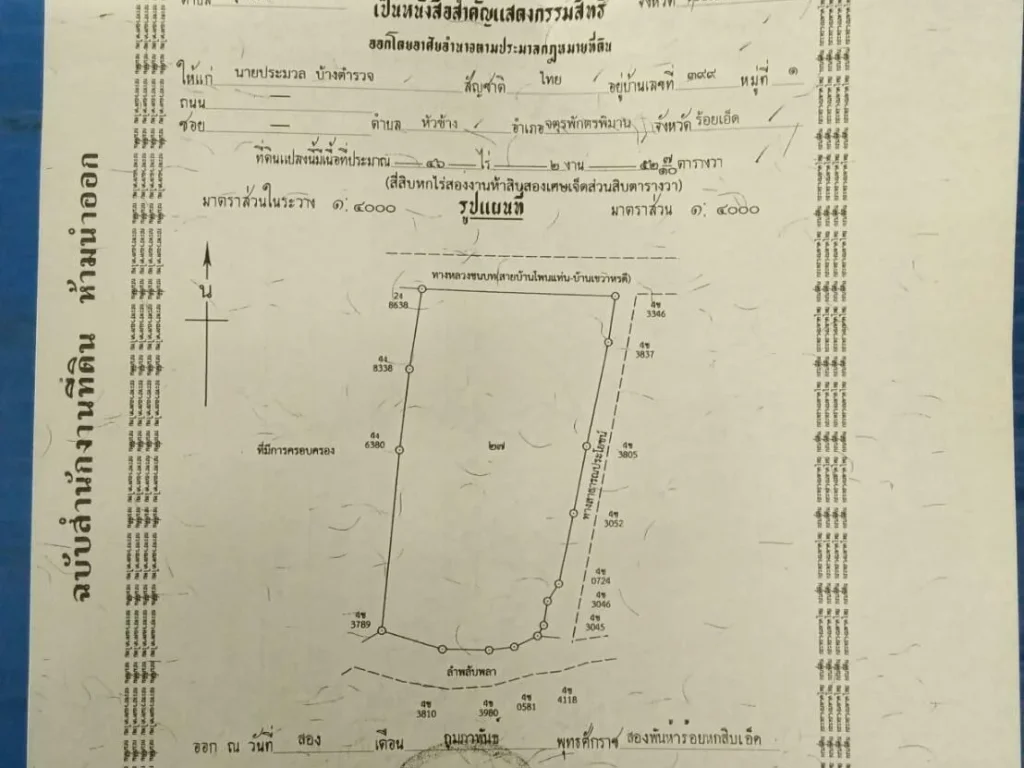 ตำบล จังหวัด
เป็นหนังสือสำคัญแสดงกรรมสิทธิ์
ออกโดยอาศัยอำนาจตามประมวลกฎหมายที่ดิน
ให้แก่ นายประมวล บ้างตำรวจ สัญชาติ ไทย อยู่บ้านเลขที่ ๓๙๙ หมู่ที่ ๑
ถนน —
ซอย — ตำบล หัวช้าง อำเภอ จตุรพักตรพิมาน จังหวัด ร้อยเอ็ด
ที่ดินแปลงนี้มีเนื้อที่ประมาณ ๔๖ ไร่ ๒ งาน ๕๒ ๗/๑๐ ตารางวา
(สี่สิบหกไร่สองงานห้าสิบสองเศษเจ็ดส่วนสิบตารางวา)
มาตราส่วนในระวาง ๑: ๔๐๐๐ รูปแผนที่ มาตราส่วน ๑: ๔๐๐๐
ทางหลวงชนบท(สายบ้านโพนแท่น-บ้านเขว้าหรดี)
น
8638
4ช
3346
4ช
3837
4ง
8338
4ง
6380
ที่มีการครอบครอง
๒๗
ทางสาธารณประโยชน์
4ช
3805
4ช
3052
4ช
0724
4ช
3046
4ช
3045
4ช
3789
ลำพลับพลา
4ช
3810
4ช
3980
4ช
0581
4ช
4118
ออก ณ วันที่ สอง เดือน กุมภาพันธ์ พุทธศักราช สองพันห้าร้อยหกสิบเอ็ด
ฉบับสำนักงานที่ดิน ห้ามนำออก